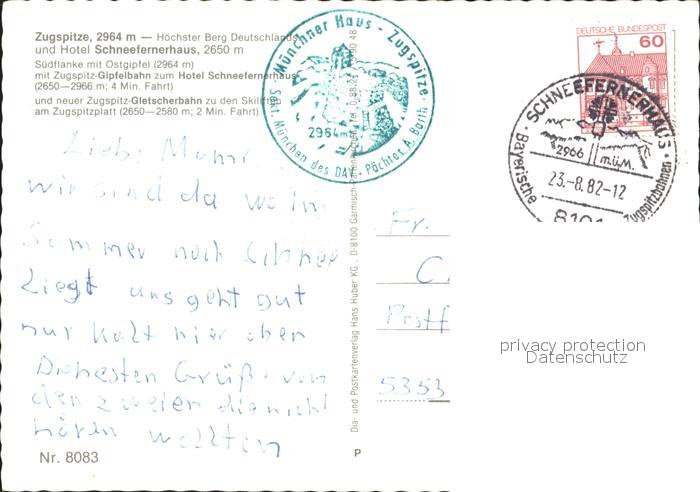 Zugspitze, 2964 m — Höchster Berg Deutschlands
und Hotel Schneefernerhaus, 2650 m
Südflanke mit Ostgipfel (2964 m)
mit Zugspitz-Gipfelbahn zum Hotel Schneefernerhaus
(2650—2966 m; 4 Min. Fahrt)
und neuer Zugspitz-Gletscherbahn zu den Skiliften
am Zugspitzplatt (2650—2580 m; 2 Min. Fahrt)
Münchner Haus - Zugspitze
2964 m
Sekt. München des DAV. Pächter A. Barth
DEUTSCHE BUNDESPOST
60
SCHNEEFERNERHAUS
2966 m ü.M.
23.-8.82-12
Bayerische Zugspitzbahnen
8101
Liebe
wir sind da wo im
Sommer noch Schnee
Liegt uns geht gut
nur kalt hier oben
Grüße von
den zweien die nicht
hören wollten
Nr. 8083
Dia- und Postkartenverlag Hans Huber KG., D-8100 Garmisch-Partenkirchen, Tel.
P
Fr.
C
Postf
5353
privacy protection
Datenschutz